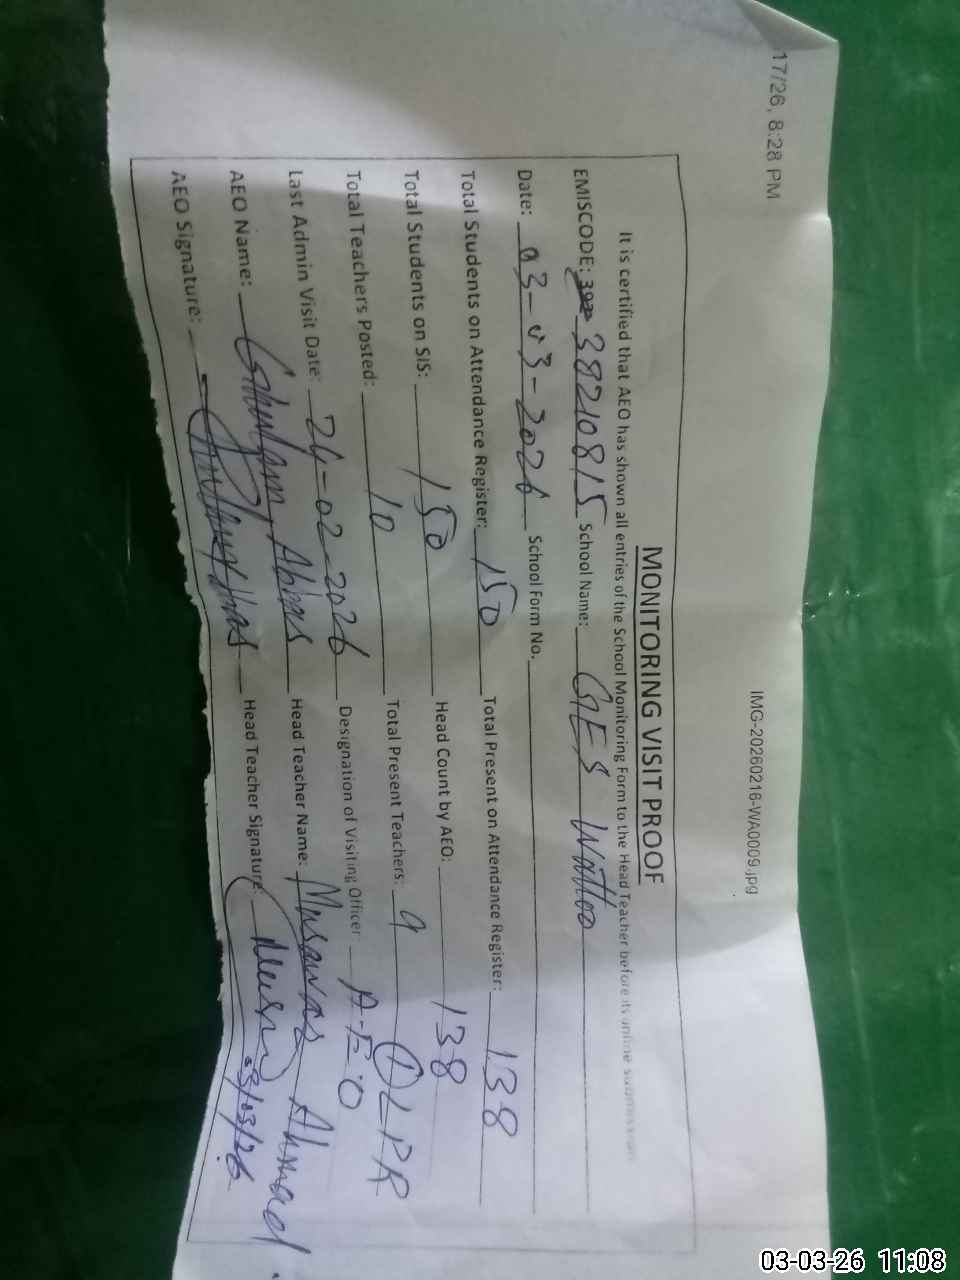 17/26, 8:28 PM
IMG-20260216-WA0009.jpg
MONITORING VISIT PROOF
It is certified that AEO has shown all entries of the School Monitoring Form to the Head Teacher before its online submission
EMISCODE: 38210815 School Name: GES Wattoo
Date: 03-03-2026 School Form No.
Total Students on Attendance Register: 150 Total Present on Attendance Register: 138
Total Students on SIS: 150 Head Count by AEO: 138
Total Teachers Posted: 10 Total Present Teachers: 9 (1) LPR
Last Admin Visit Date: 24-02-2026 Designation of Visiting Officer A-E-O
AEO Name: Ghulam Abbas Head Teacher Name: Ahmad
AEO Signature: Head Teacher Signature: 03/03/26
03-03-26 11:08